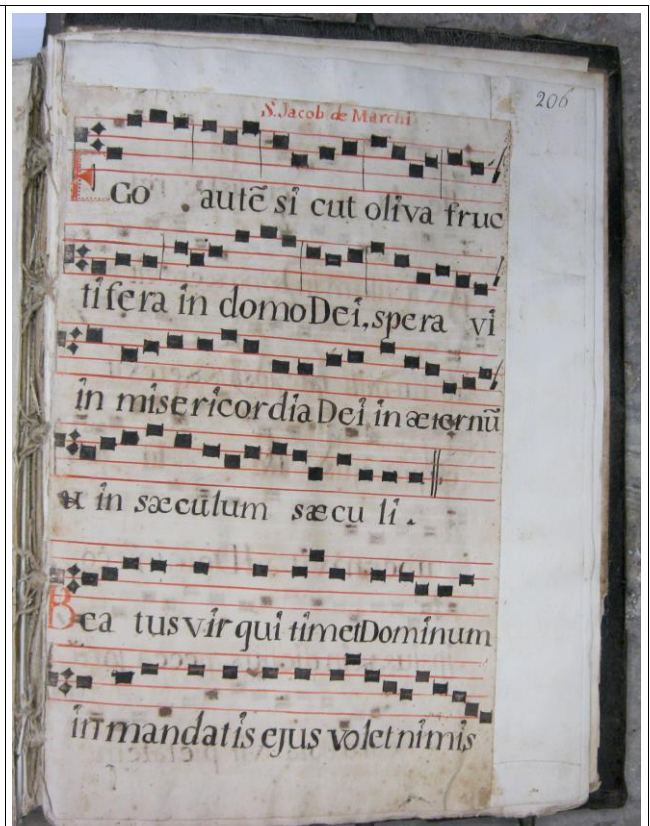 206
S. Jacob de Marchi
EGo . autē si cut oliva fruc
tifera in domo Dei, spera vi
in misericordia Dei in æternū
u in sæculum sæcu li .
Bea tus vir qui timet Dominum
in mandatis ejus volet nimis